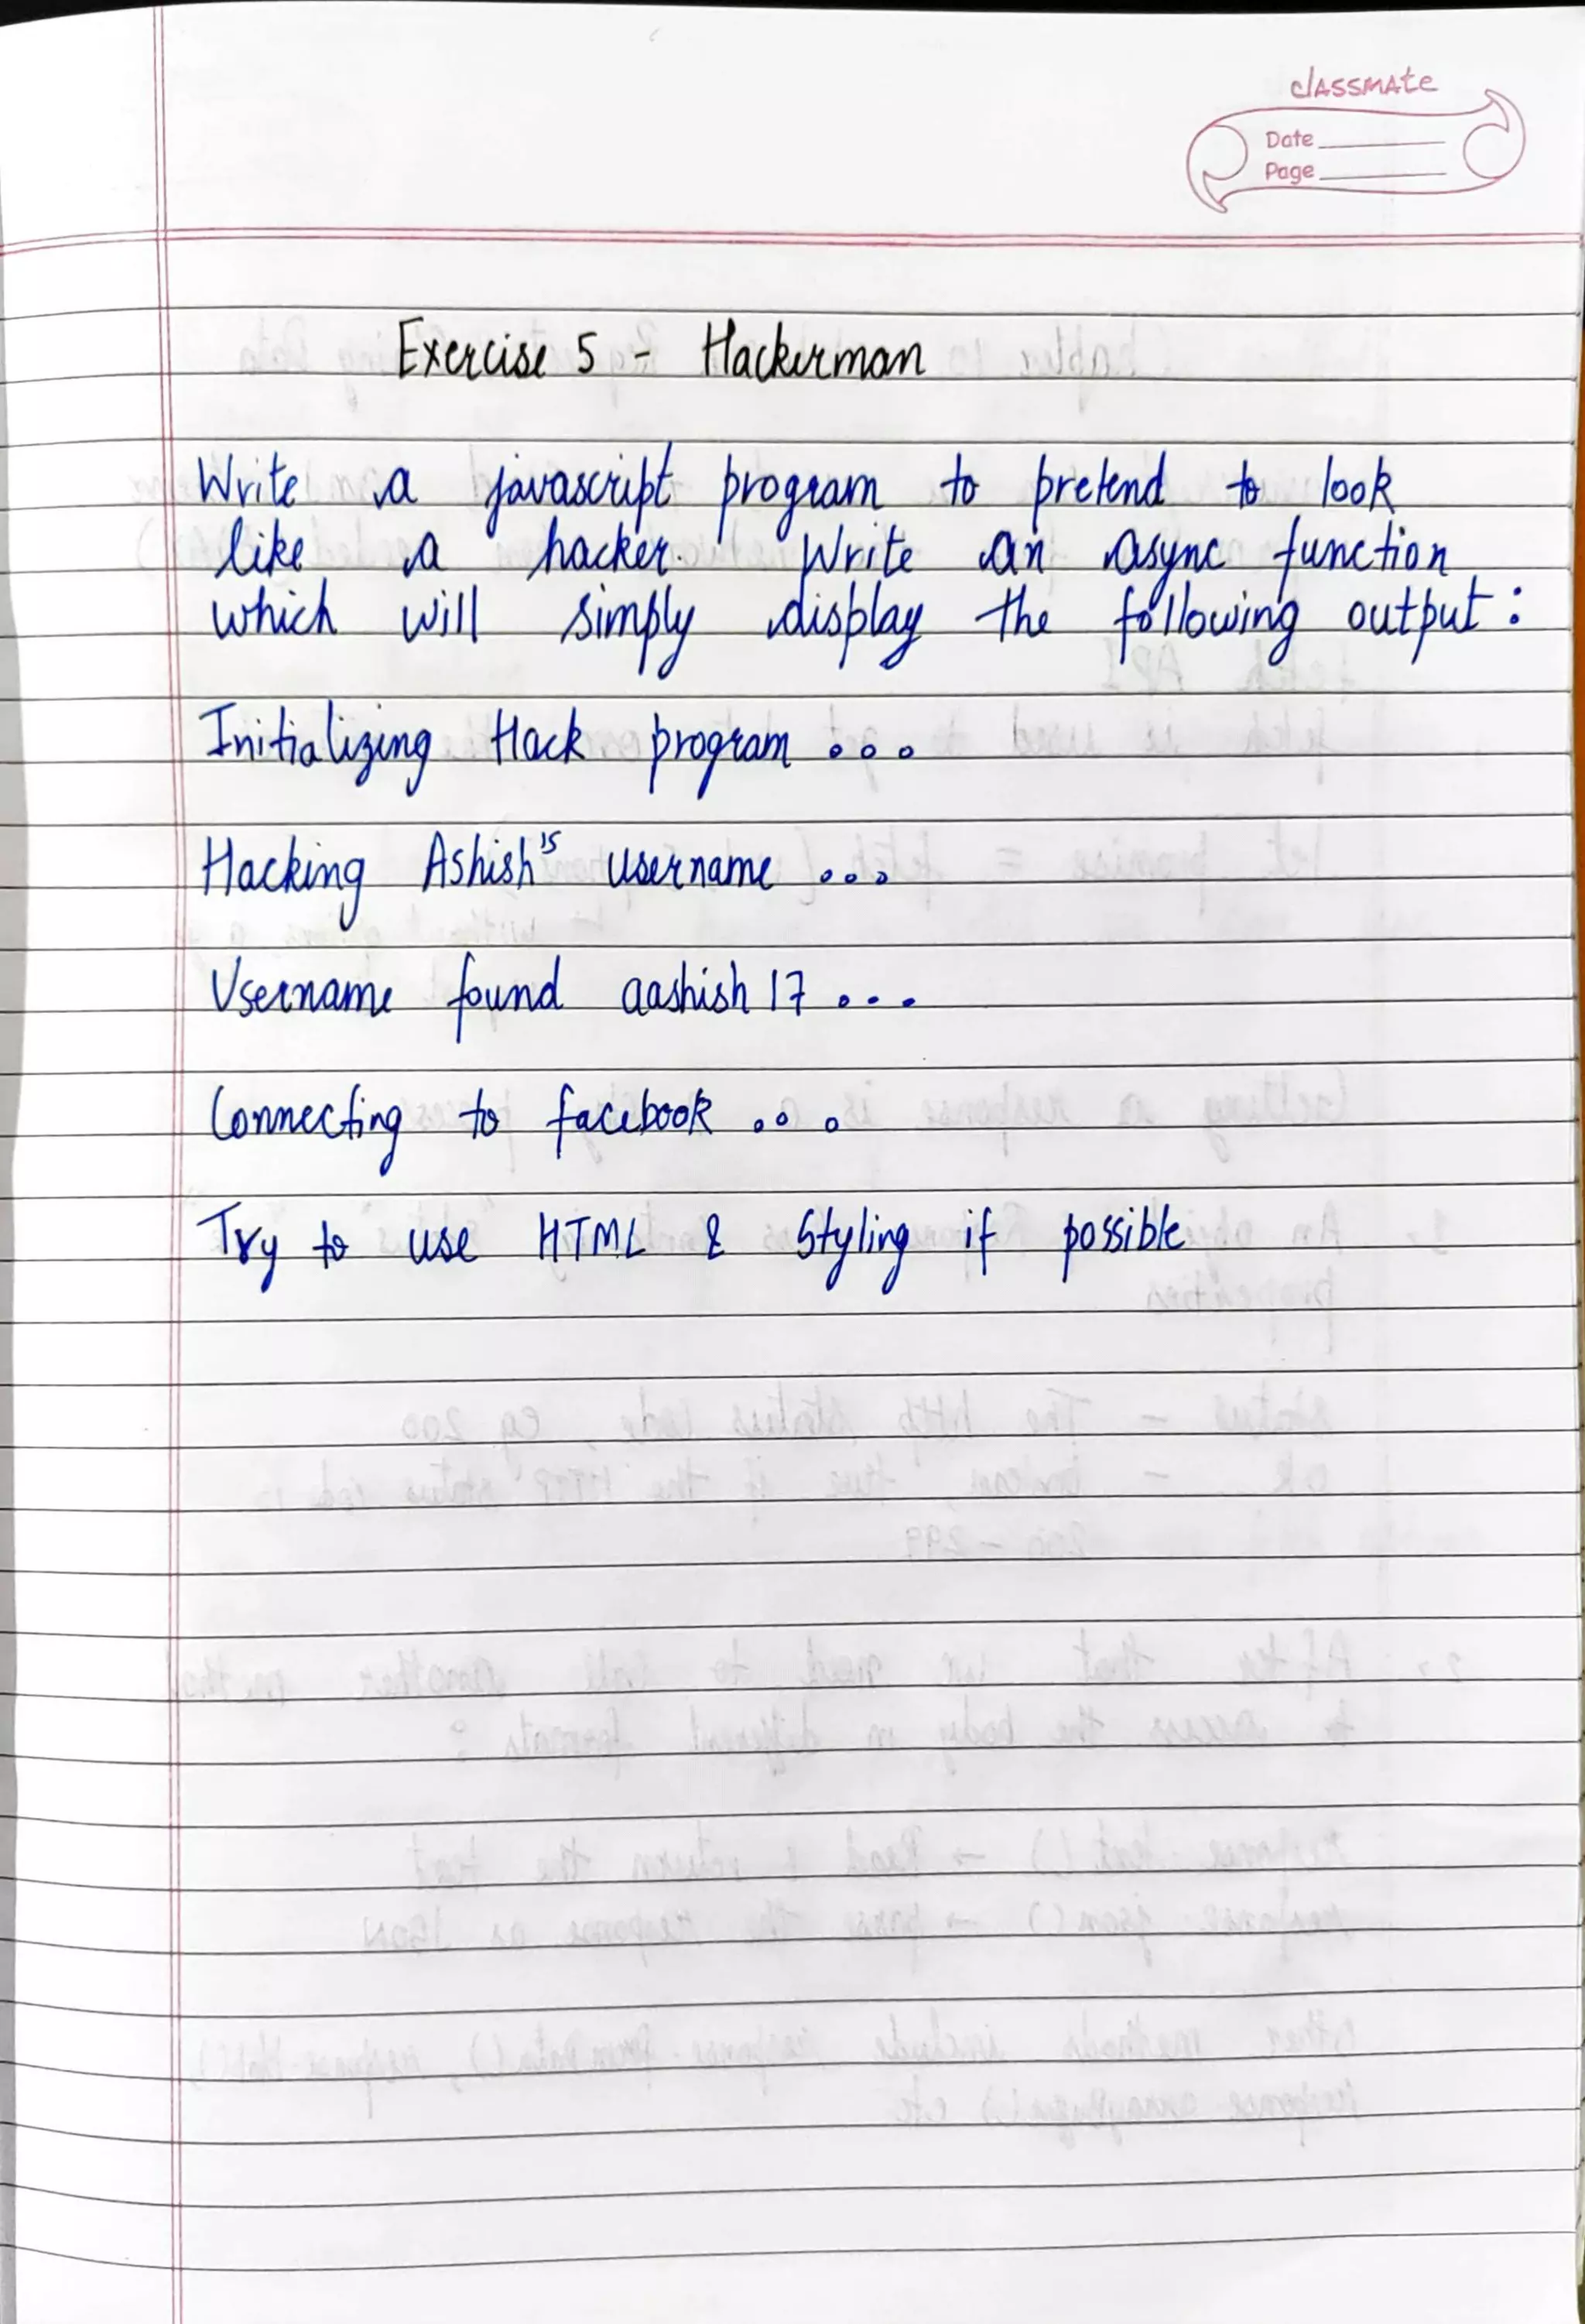 classmate
Date
Page
Exercise 5 - Hackerman
Write a javascript program to pretend to look
like a hacker. Write an async function
which will simply display the following output:
Initializing Hack program ...
Hacking Ashish's username ...
Username found aashish17 ...
Connecting to facebook ...
Try to use HTML & Styling if possible